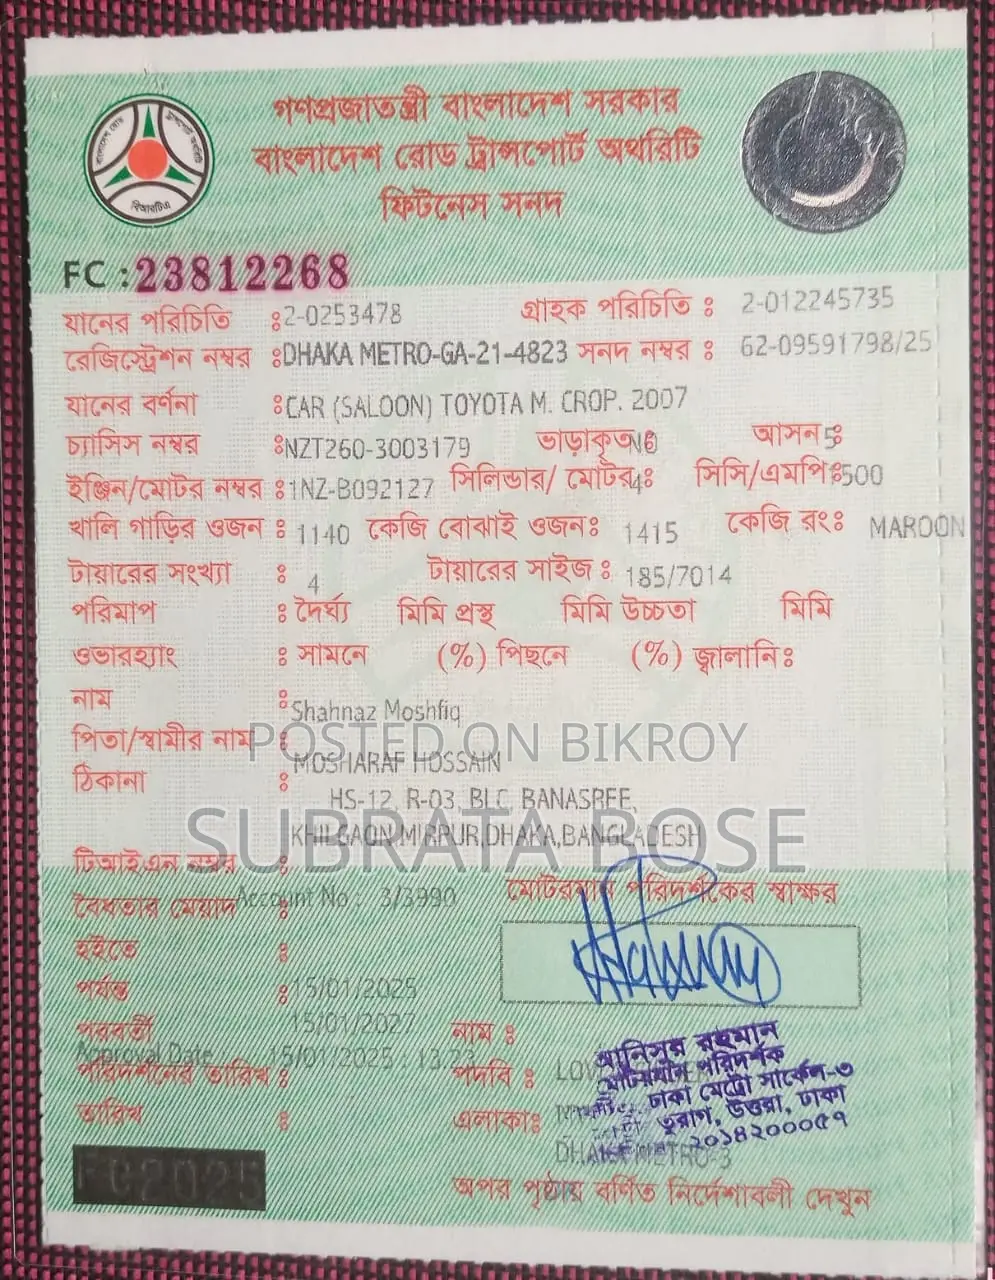 গণপ্রজাতন্ত্রী বাংলাদেশ সরকার
বাংলাদেশ রোড ট্রান্সপোর্ট অথরিটি
ফিটনেস সনদ
বিআরটিএ
FC : 23812268
যানের পরিচিতি : 2-0253478 গ্রাহক পরিচিতি : 2-012245735
রেজিস্ট্রেশন নম্বর : DHAKA METRO-GA-21-4823 সনদ নম্বর : 62-09591798/25
যানের বর্ণনা : CAR (SALOON) TOYOTA M. CROP. 2007
চ্যাসিস নম্বর : NZT260-3003179 ভাড়াকৃত NO আসন 5
ইঞ্জিন/মোটর নম্বর : 1NZ-B092127 সিলিন্ডার/ মোটর 4 সিসি/এমপি 1500
খালি গাড়ির ওজন : 1140 কেজি বোঝাই ওজন: 1415 কেজি রং: MAROON
টায়ারের সংখ্যা : 4 টায়ারের সাইজ : 185/7014
পরিমাপ : দৈর্ঘ্য মিমি প্রস্থ মিমি উচ্চতা মিমি
ওভারহ্যাং : সামনে (%) পিছনে (%) জ্বালানি:
নাম : Shahnaz Moshfiq
পিতা/স্বামীর নাম : MOSHARAF HOSSAIN
POSTED ON BIKROY
ঠিকানা : HS-12, R-03, BLC, BANASREE,
KHILGAON,MIRPUR,DHAKA,BANGLADESH
SUBRATA BOSE
টিআইএন নম্বর :
মোটরযান পরিদর্শকের স্বাক্ষর
বৈধতার মেয়াদ Account No : 3/3990
হইতে :
পর্যন্ত : 15/01/2025
পরবর্তী 15/01/2027 নাম :
Approval Date : 15/01/2025 13:23
পরিদর্শনের তারিখ : পদবি :
তারিখ : এলাকা:
DHAKA METRO-3
আনিসুর রহমান
মোটরযান পরিদর্শক
ঢাকা মেট্রো সার্কেল-৩
তুরাগ, উত্তরা, ঢাকা
২০১৪২০০০৫৭
FC2025
অপর পৃষ্ঠায় বর্ণিত নির্দেশাবলী দেখুন